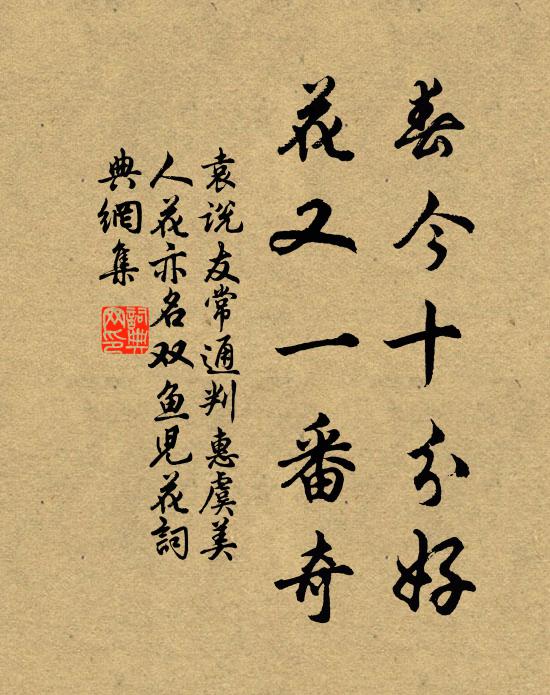 春今十分好
花又一番奇
袁说友常通判惠虞美
人花亦名双鱼儿花詞
典網集
詞典网印